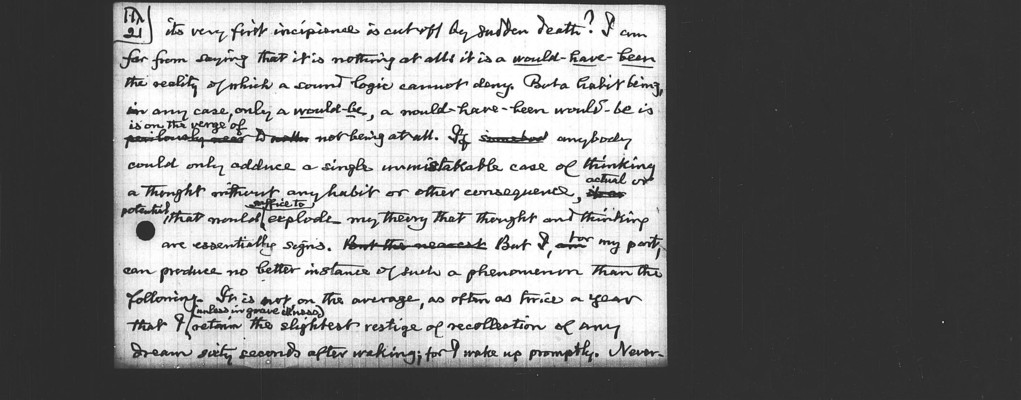 its very first incipience is cut off by sudden death? I am
far from saying that it is nothing at all: it is a would-have-been
the reality of which a sound logic cannot deny. But a habit being,
in any case, only a would-be, a would-have-been would-be is
is on the verge of
perilously near to not being at all. If somebod anybody
could only adduce a single unmistakable case of thinking
actual or
a thought without any habit or other consequence,
potential, suffice to
that would explode my theory that thought and thinking
are essentially signs. But the nearest But I, for my part,
can produce no better instance of such a phenomenon than the
following. It is not on the average, as often as twice a year
(unless in grave illness)
that I retain the slightest vestige of recollection of any
dream sixty seconds after waking; for I wake up promptly. Never-